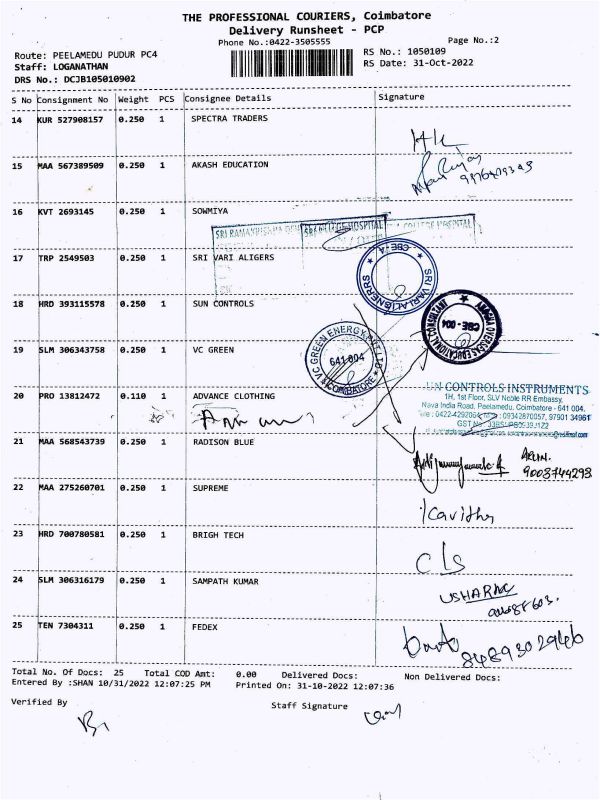 THE PROFESSIONAL COURIERS, Coimbatore
Delivery Runsheet - PCP
Phone No.:0422-3505555
Page No.:2
Route: PEELAMEDU PUDUR PC4
RS No.: 1050109
Staff: LOGANATHAN
RS Date: 31-Oct-2022
DRS No.: DCJB105010902
S No Consignment No Weight PCS Consignee Details Signature
14 KUR 527908157 0.250 1 SPECTRA TRADERS
15 MAA 567389509 0.250 1 AKASH EDUCATION
16 KVT 2693145 0.250 1 SOWMIYA
SRI RAMAKRISHNA HOSPITAL
17 TRP 2549503 0.250 1 SRI VARI ALIGERS
SRI VARI ALIGNERRS CBE
18 HRD 393115578 0.250 1 SUN CONTROLS
OVERSEAS EDUCATIONAL CONSULTANT
CBE - 004
19 SLM 306343758 0.250 1 VC GREEN
VC GREEN ENERGY PVT LTD
641 004
COIMBATORE
20 PRO 13812472 0.110 1 ADVANCE CLOTHING
UN CONTROLS INSTRUMENTS
1H, 1st Floor, SLV Noble RR Embassy,
Nava India Road, Peelamedu, Coimbatore - 641 004.
09342870057, 97901 34961
21 MAA 568543739 0.250 1 RADISON BLUE
ARUN.
9008744298
22 MAA 275260701 0.250 1 SUPREME
Kavitha
23 HRD 700780581 0.250 1 BRIGH TECH
CLS
24 SLM 306316179 0.250 1 SAMPATH KUMAR
25 TEN 7304311 0.250 1 FEDEX
8489302946
Total No. Of Docs: 25 Total COD Amt: 0.00 Delivered Docs: Non Delivered Docs:
Entered By :SHAN 10/31/2022 12:07:25 PM Printed On: 31-10-2022 12:07:36
Verified By Staff Signature